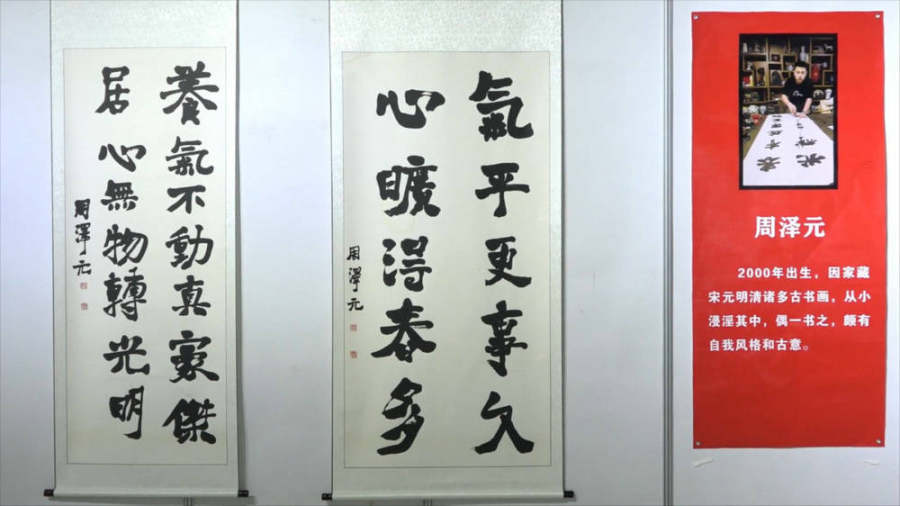 養氣不動真豪傑
居心無物轉光明
周澤元
氣平更事久
心曠得春多
周澤元
周泽元
2000年出生，因家藏
宋元明清诸多古书画，从小
浸淫其中，偶一书之，颇有
自我风格和古意。